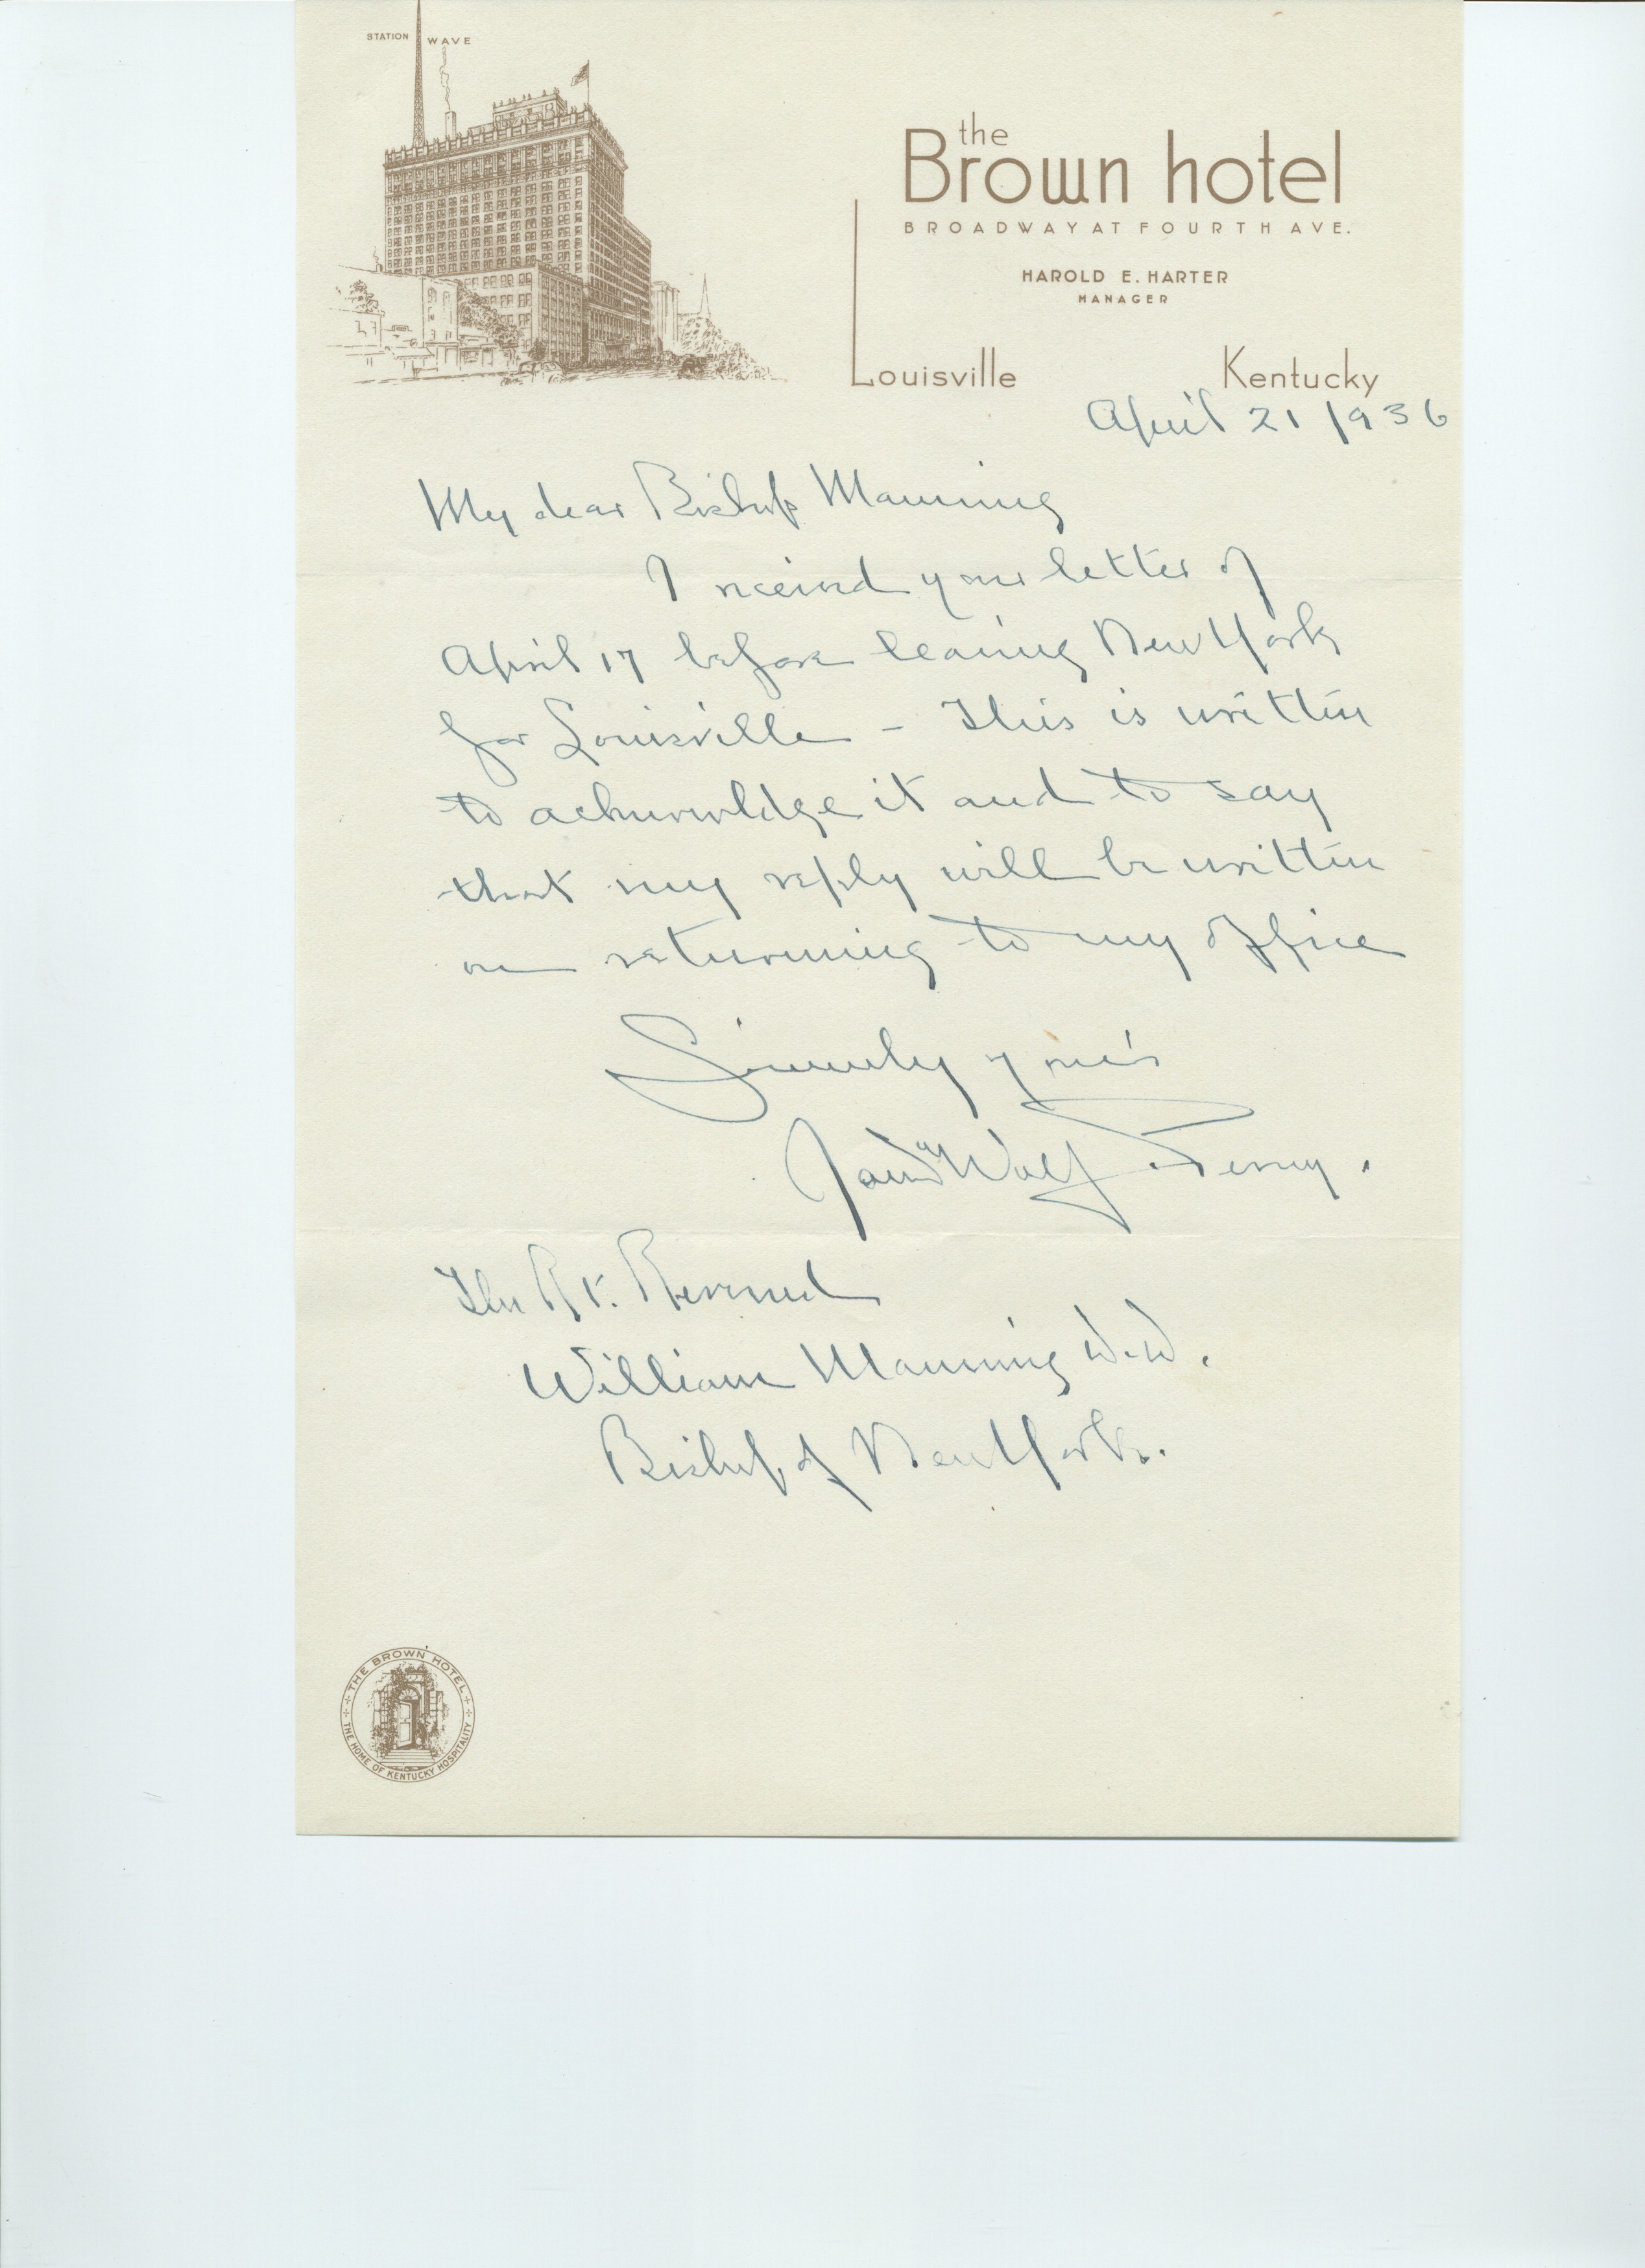 STATION WAVE
the
Brown hotel
BROADWAY AT FOURTH AVE.
HAROLD E. HARTER
MANAGER
Louisville Kentucky
April 21 1936
My dear Bishop Manning
I received your letter of
April 17 before leaving New York
for Louisville – This is written
to acknowledge it and to say
that my reply will be written
on returning to my office
Sincerely yours
James DeWolf Perry.
The Rt. Reverend
William Manning D.D.
Bishop of New York.
THE BROWN HOTEL
THE HOME OF KENTUCKY HOSPITALITY